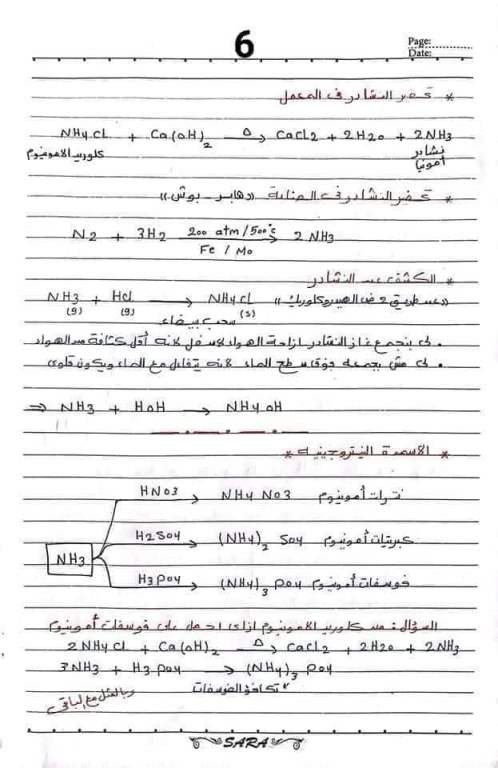 6
Page:
Date:
* تحضير النشادر في المعمل
NH4Cl + Ca(OH)2 —Δ→ CaCl2 + 2H2O + 2NH3
كلوريد الامونيوم
نشادر
أمونيا
* تحضير النشادر في الصناعة "(هابر - بوش)"
N2 + 3H2 —200 atm/500°c / Fe / Mo→ 2NH3
* الكشف عن النشادر
"عن طريق 2 ض الهيدروكلوريك"
NH3 (g) + HCl (g) → NH4Cl (s)
سحب بيضاء
• لى بنجمع غاز النشادر ازاحة الهواء لاسفل لانه أقل كثافة من الهواء
• لى مش بجمعه فوق سطح الماء لانه يتفاعل مع الماء ويكون قلوى
⇒ NH3 + HOH → NH4OH
* الاسمدة النيتروجينية *
HNO3 → NH4NO3 نترات أمونيوم
NH3
H2SO4 → (NH4)2 SO4 كبريتات أمونيوم
H3PO4 → (NH4)3 PO4 فوسفات أمونيوم
السؤال: من كلوريد الامونيوم ازاى احصل على فوسفات أمونيوم
2NH4Cl + Ca(OH)2 —Δ→ CaCl2 + 2H2O + 2NH3
3NH3 + H3PO4 → (NH4)3 PO4
تكافؤ الفوسفات
وبالمثل مع الباقى
SARA